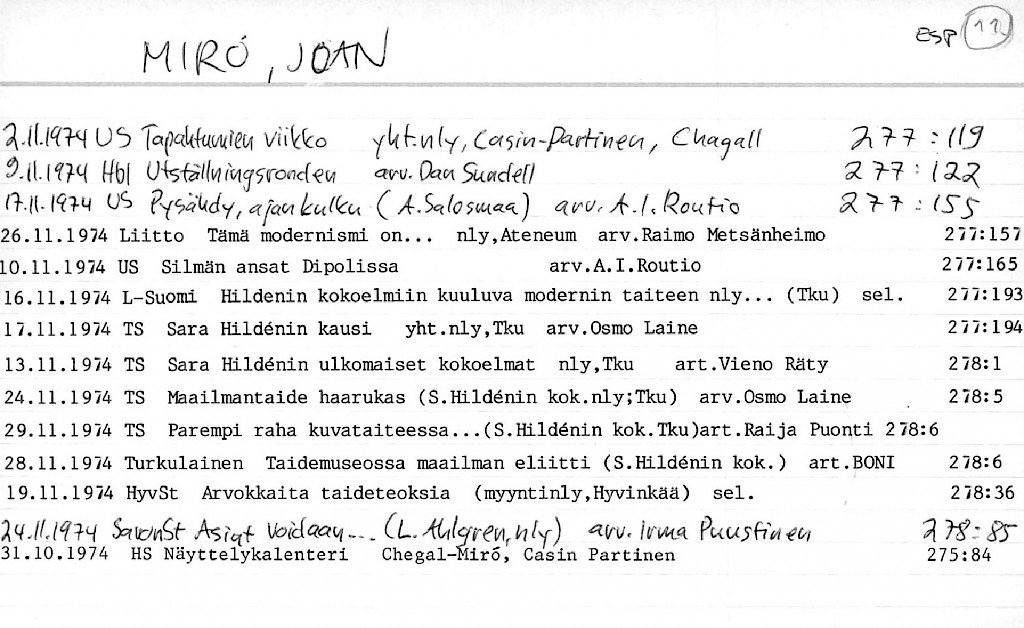 ESP 11
MIRÓ, JOAN
2.11.1974 US Tapahtumien viikko yht.nly, Casin-Partinen, Chagall 277:119
9.11.1974 Hbl Utställningsronden arv. Dan Sundell 277:122
17.11.1974 US Pysähdy, ajan kulku (A.Salosmaa) arv. A.I.Routio 277:155
26.11.1974 Liitto Tämä modernismi on... nly,Ateneum arv.Raimo Metsänheimo 277:157
10.11.1974 US Silmän ansat Dipolissa arv.A.I.Routio 277:165
16.11.1974 L-Suomi Hildenin kokoelmiin kuuluva modernin taiteen nly... (Tku) sel. 277:193
17.11.1974 TS Sara Hildénin kausi yht.nly,Tku arv.Osmo Laine 277:194
13.11.1974 TS Sara Hildénin ulkomaiset kokoelmat nly,Tku art.Vieno Räty 278:1
24.11.1974 TS Maailmantaide haarukas (S.Hildénin kok.nly;Tku) arv.Osmo Laine 278:5
29.11.1974 TS Parempi raha kuvataiteessa...(S.Hildénin kok.Tku)art.Raija Puonti 278:6
28.11.1974 Turkulainen Taidemuseossa maailman eliitti (S.Hildénin kok.) art.BONI 278:6
19.11.1974 HyvSt Arvokkaita taideteoksia (myyntinly,Hyvinkää) sel. 278:36
24.11.1974 SavonSt Asiat voidaan... (L.Ahlgren,nly) arv. Irma Puustinen 278:85
31.10.1974 HS Näyttelykalenteri Chegal-Miró, Casin Partinen 275:84